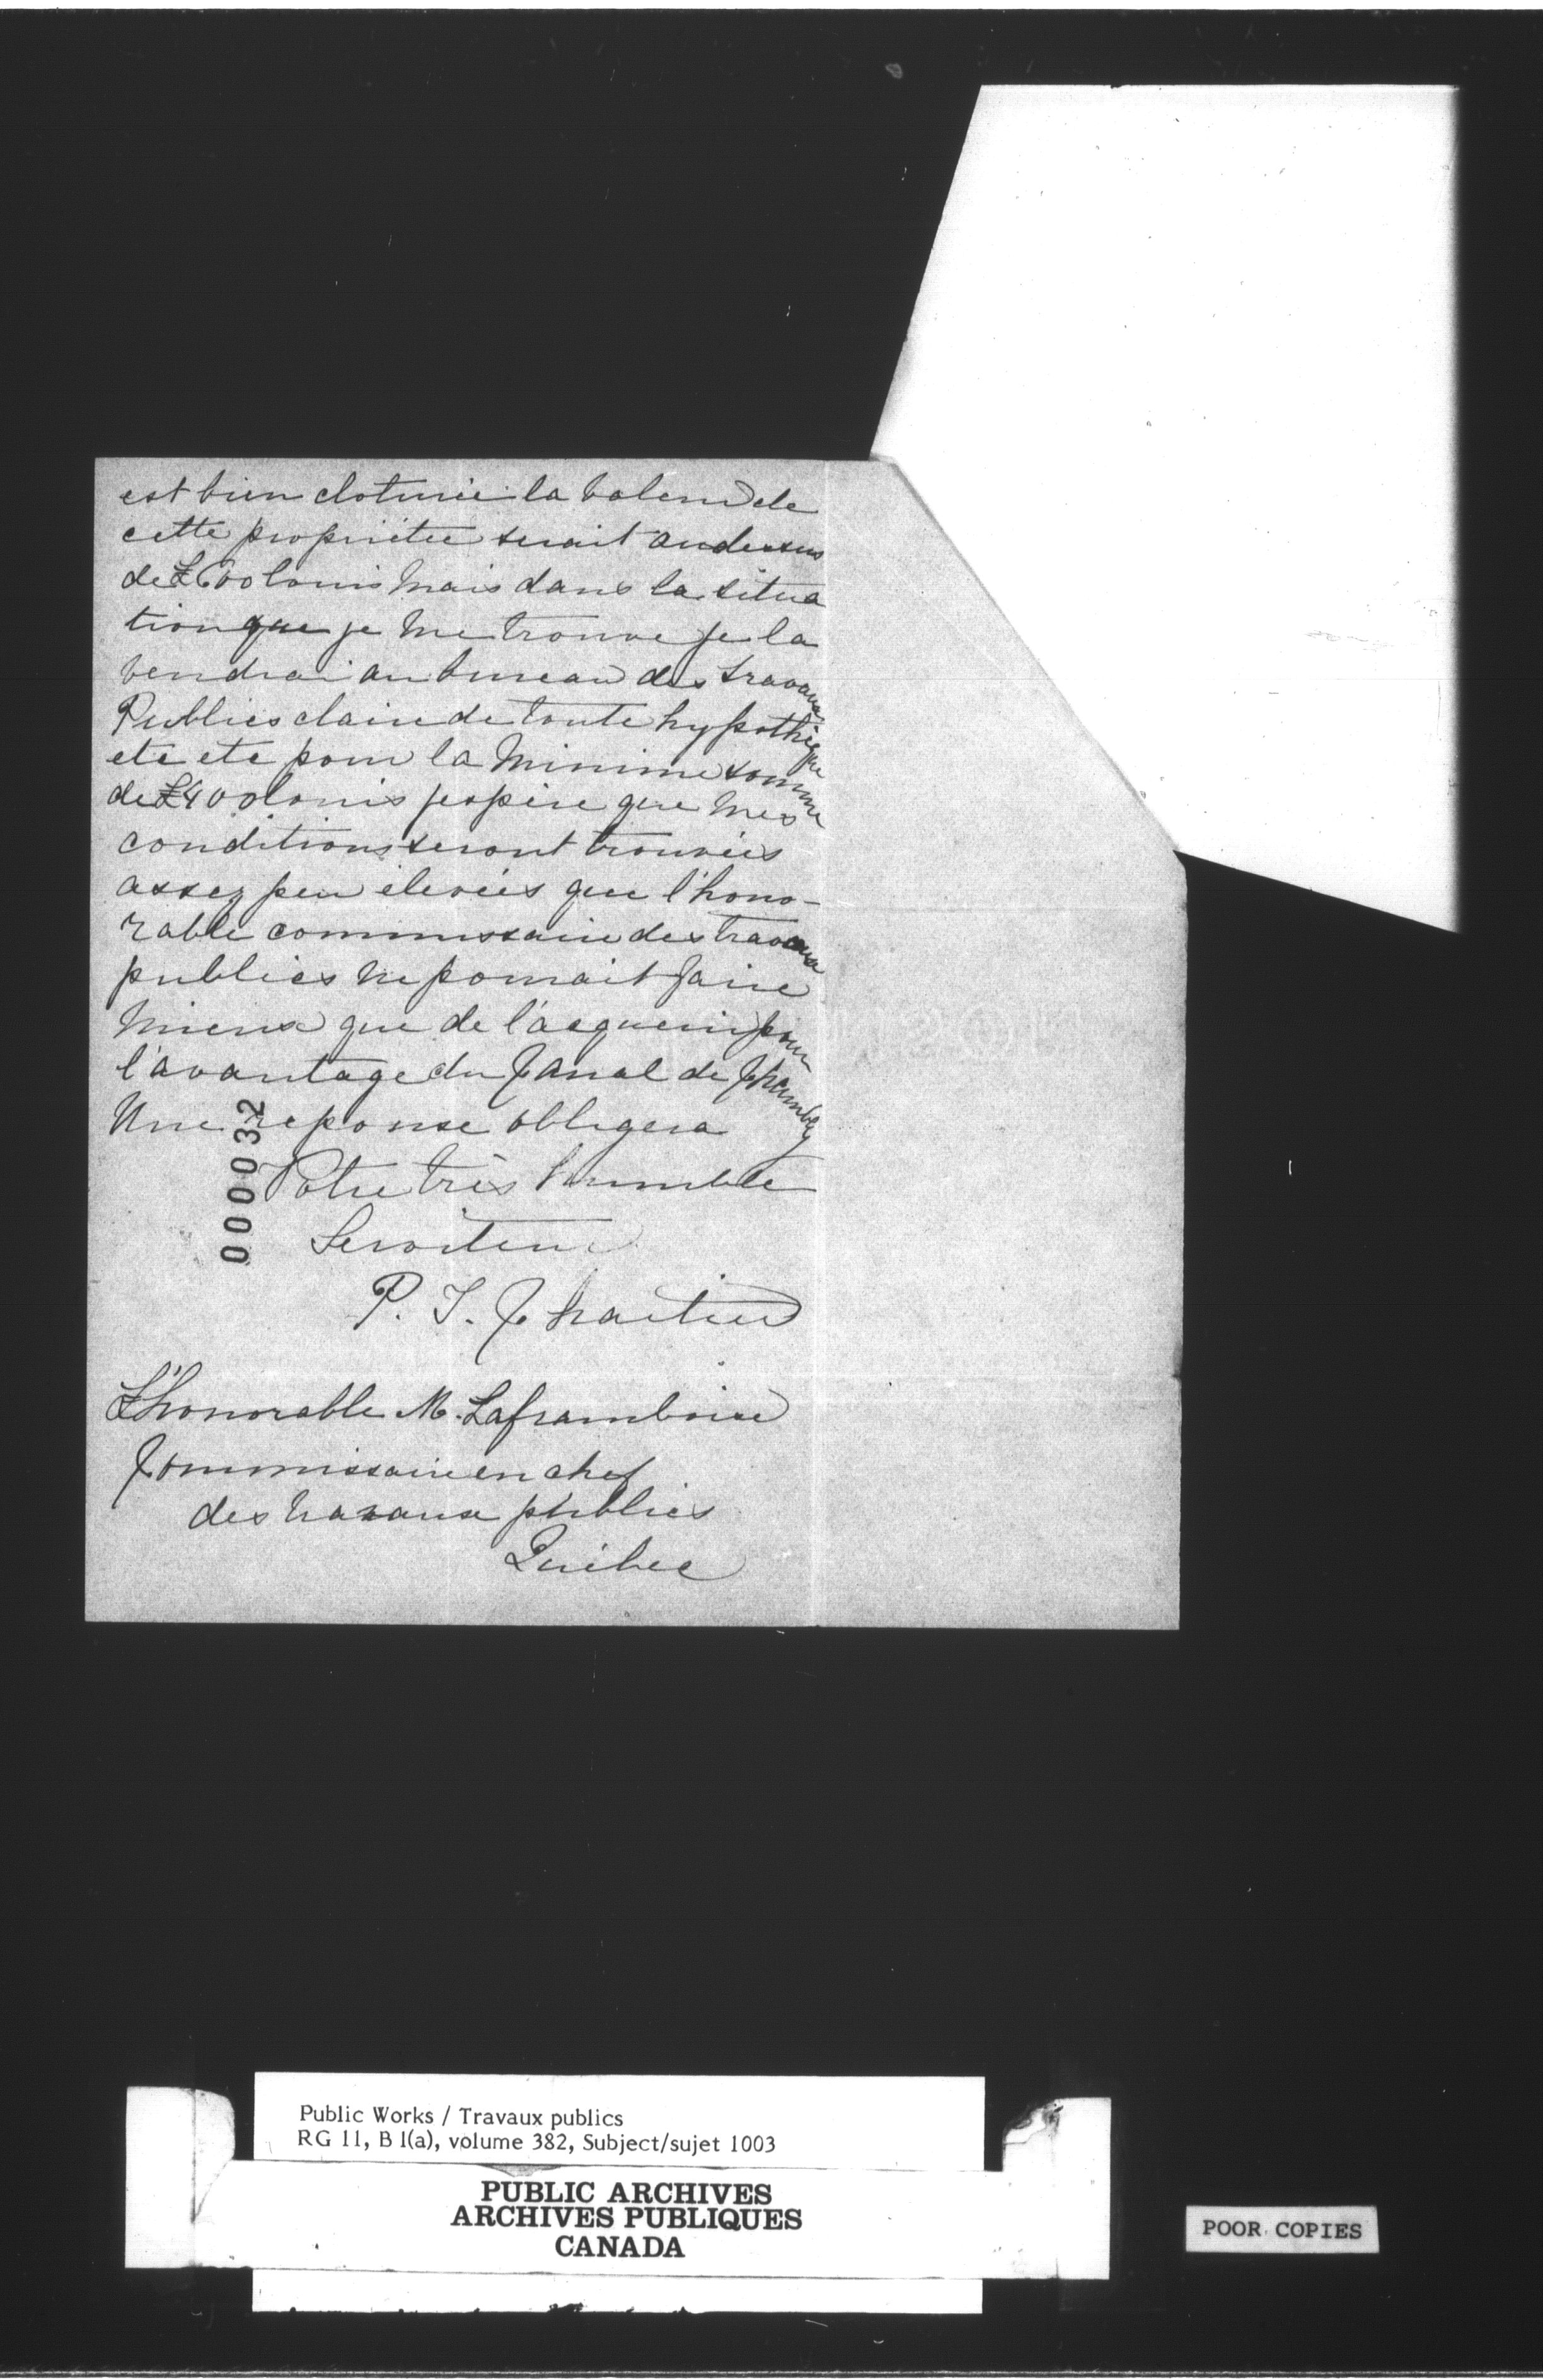 est bien cloturée la valeur de
cette propriétée serait audessus
de £600 louis mais dans la situa
tion que je me trouve je la
vendrai au bureau des travaux
Publics claire de toute hypothèque
etc etc pour la minime somme
de £400 louis jespère que mes
conditions seront trouvées
assez peu élevées que l'hono-
rable commissaire des travaux
publics ne pourrait faire
mieux que de l'acquerir pour
l'avantage du Canal de Chambly
Une reponse obligera
Votre très humble
Serviteur
000032
L'honorable M. Laframboise
Commissaire en chef
des travaux publics
Québec
Public Works / Travaux publics
RG 11, B 1(a), volume 382, Subject/sujet 1003
PUBLIC ARCHIVES
ARCHIVES PUBLIQUES
CANADA
POOR COPIES